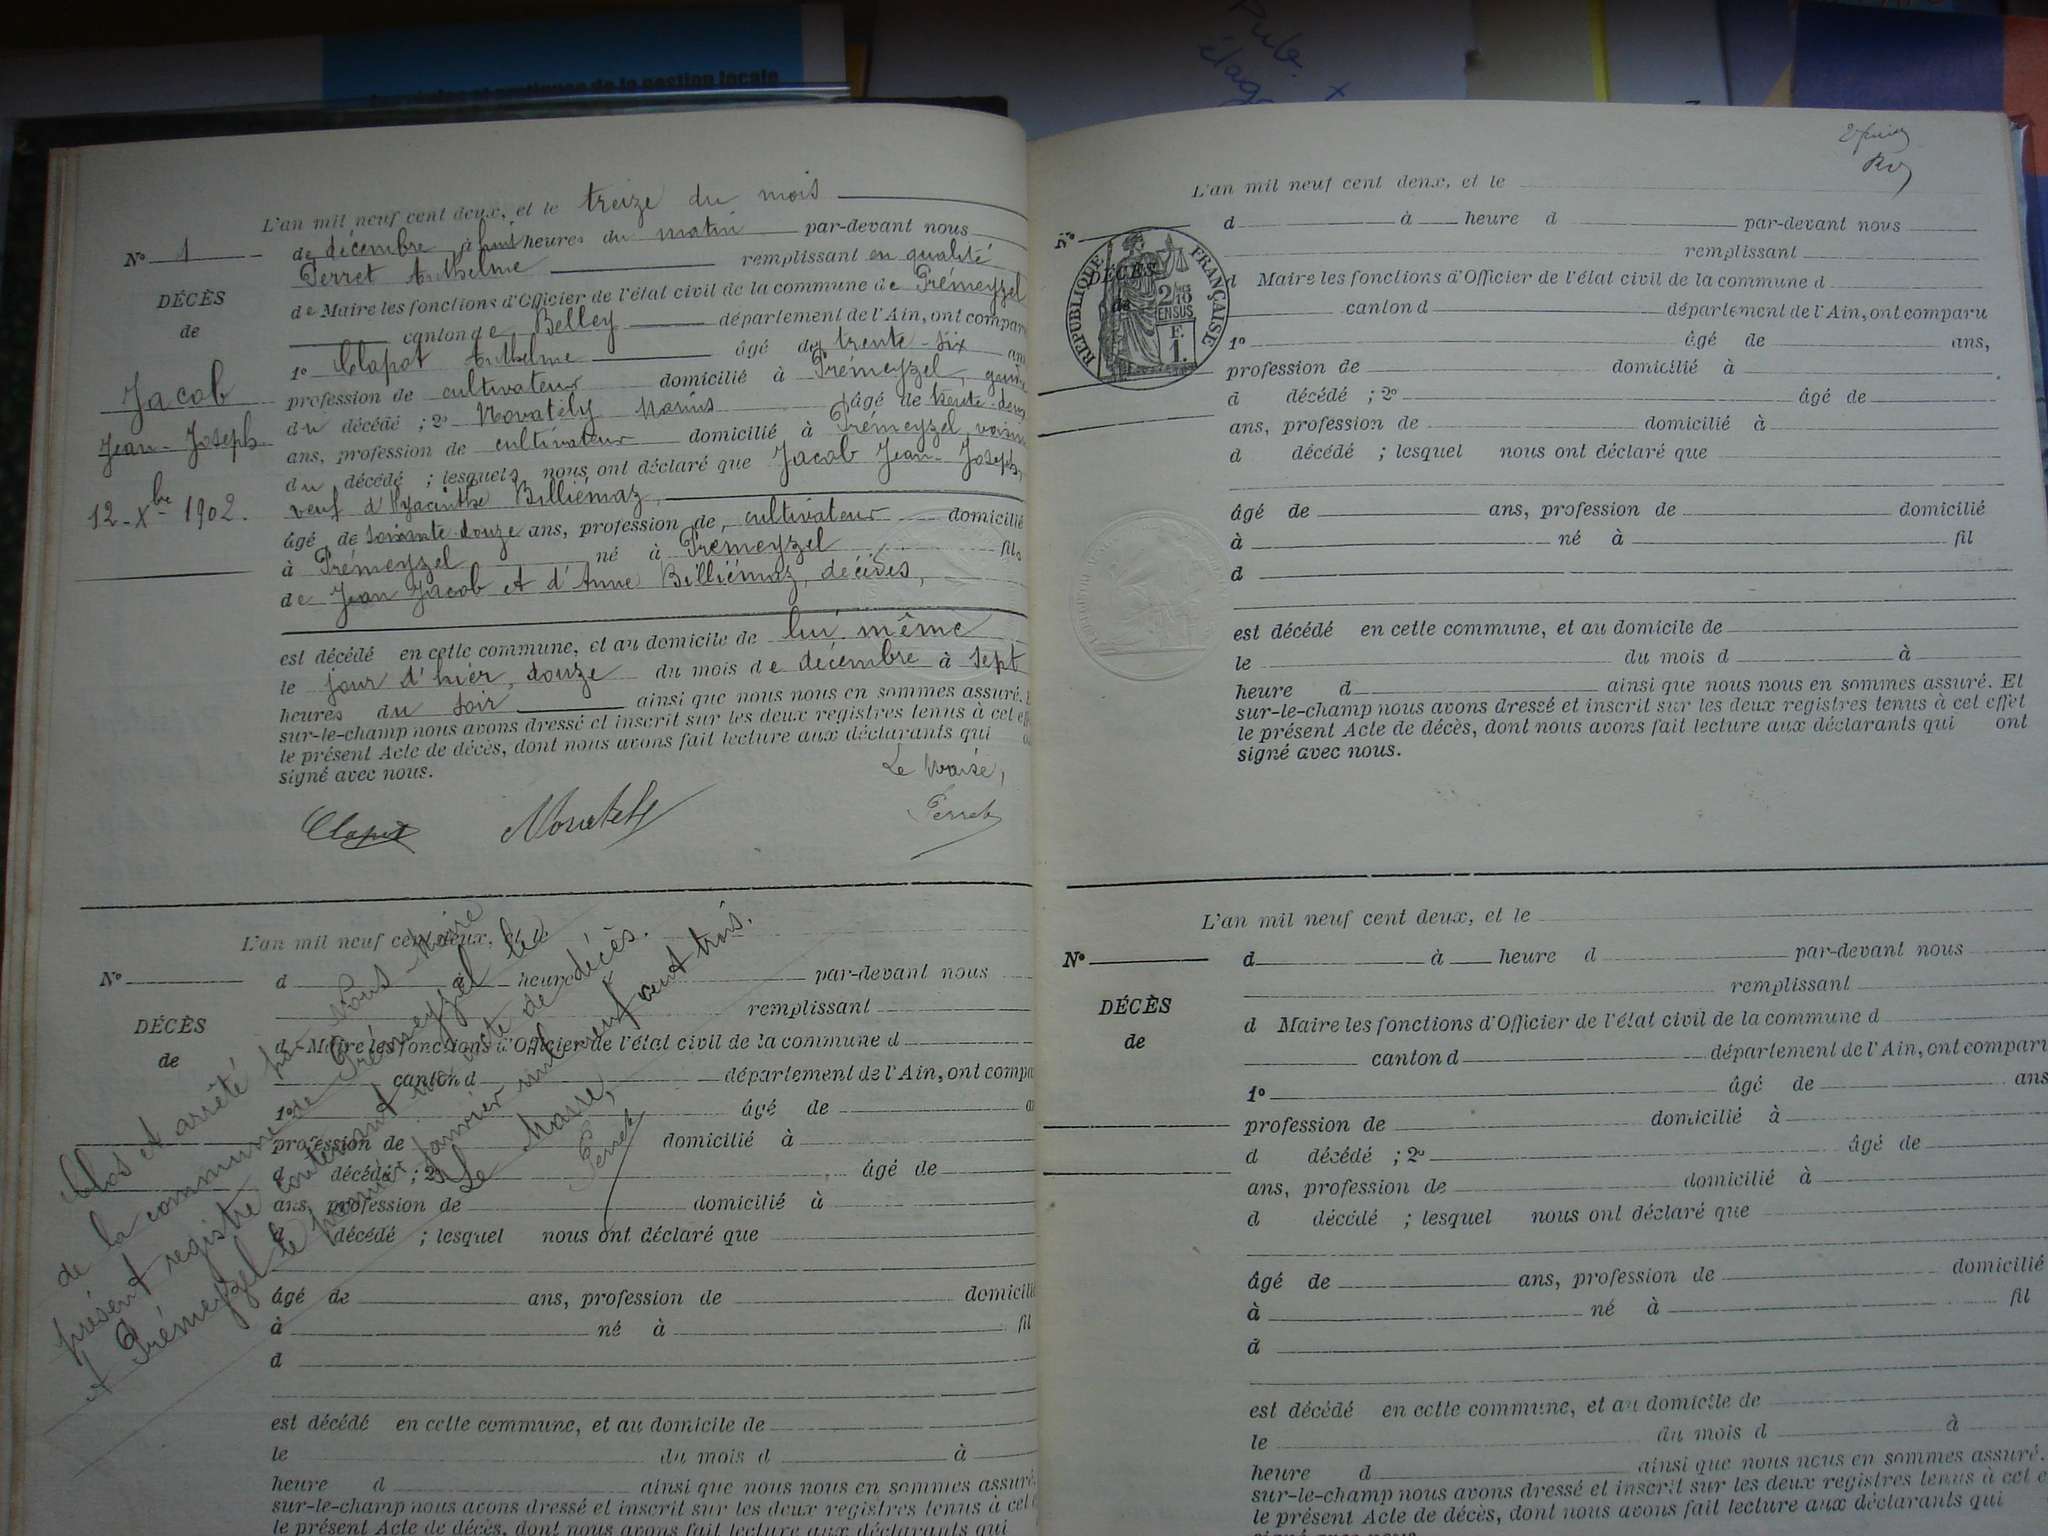 Les règles et pratiques de la gestion locale
Pub. +
élag
L'an mil neuf cent deux, et le treize du mois
No 1 de décembre à huit heures du matin par-devant nous
Perret Anthelme remplissant en qualité
DÉCÈS de Maire les fonctions d'Officier de l'état civil de la commune de Prémeyzel
de canton de Belley département de l'Ain, ont comparu
1o Clapot Anthelme âgé de trente-six ans
Jacob profession de cultivateur domicilié à Prémeyzel, gendre
du décédé ; 2o Marius âgé de trente-deux
Jean-Joseph ans, profession de cultivateur domicilié à Prémeyzel, voisin
du décédé ; lesquels nous ont déclaré que Jacob Jean-Joseph,
12-Xbre 1902. veuf d'Hyacinthe Billiémaz,
âgé de soixante-douze ans, profession de cultivateur domicilié
à Prémeyzel né à Prémeyzel fils
de Jean Jacob et d'Anne Billiémaz, décédés,
est décédé en cette commune, et au domicile de lui même
le jour d'hier, douze du mois de décembre à sept
heures du soir ainsi que nous nous en sommes assuré.
sur-le-champ nous avons dressé et inscrit sur les deux registres tenus à cet eff
le présent Acte de décès, dont nous avons fait lecture aux déclarants qui
signé avec nous.
Le Maire,
Clapot Perret
L'an mil neuf cent deux, et le
No d à heure d par-devant nous
remplissant
DÉCÈS d Maire les fonctions d'Officier de l'état civil de la commune d
de canton d département de l'Ain, ont compa
1o âgé de
profession de domicilié à
d décédé ; 2o âgé de
ans, profession de domicilié à
d décédé ; lesquel nous ont déclaré que
âgé de ans, profession de domicilié
à né à fil
d
est décédé en cette commune, et au domicile de
le du mois d à
heure d ainsi que nous nous en sommes assuré
sur-le-champ nous avons dressé et inscrit sur les deux registres tenus à cet
le présent Acte de décès, dont nous avons fait lecture aux déclarants qui
Clos et arrêté par Nous Maire
de la commune de Prémeyzel le
présent registre contenant un acte de décès.
A Prémeyzel le premier janvier mil neuf cent trois.
Le Maire,
Perret
L'an mil neuf cent deux, et le
No d à heure d par-devant nous
remplissant
RÉPUBLIQUE FRANÇAISE
2/10 EN SUS
F.
1.
DÉCÈS d Maire les fonctions d'Officier de l'état civil de la commune d
de canton d département de l'Ain, ont comparu
1o âgé de ans,
profession de domicilié à
d décédé ; 2o âgé de
ans, profession de domicilié à
d décédé ; lesquel nous ont déclaré que
âgé de ans, profession de domicilié
à né à fil
d
est décédé en cette commune, et au domicile de
le du mois d à
heure d ainsi que nous nous en sommes assuré. Et
sur-le-champ nous avons dressé et inscrit sur les deux registres tenus à cet effet
le présent Acte de décès, dont nous avons fait lecture aux déclarants qui ont
signé avec nous.
L'an mil neuf cent deux, et le
No d à heure d par-devant nous
remplissant
DÉCÈS d Maire les fonctions d'Officier de l'état civil de la commune d
de canton d département de l'Ain, ont comparu
1o âgé de ans
profession de domicilié à
d décédé ; 2o âgé de
ans, profession de domicilié à
d décédé ; lesquel nous ont déclaré que
âgé de ans, profession de domicilié
à né à fil
d
est décédé en cette commune, et au domicile de
le du mois d à
heure d ainsi que nous nous en sommes assuré.
sur-le-champ nous avons dressé et inscrit sur les deux registres tenus à cet e
le présent Acte de décès, dont nous avons fait lecture aux déclarants qui
signé avec nous.